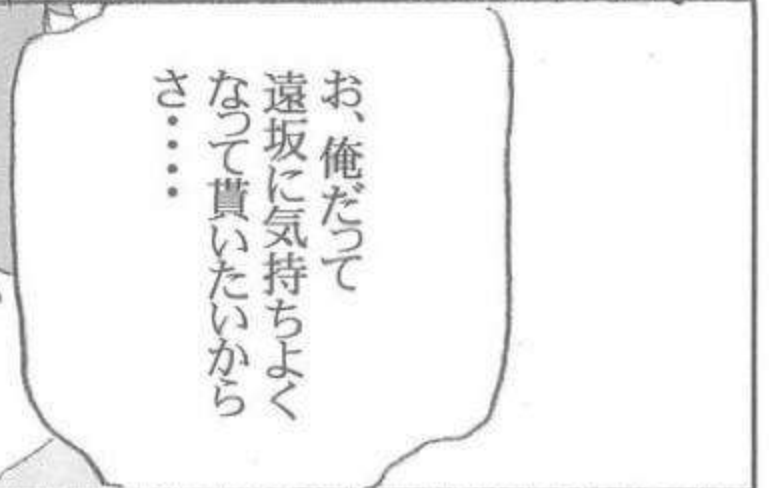 お、俺だって
遠坂に気持ちよく
なって貰いたいから
さ・・・・